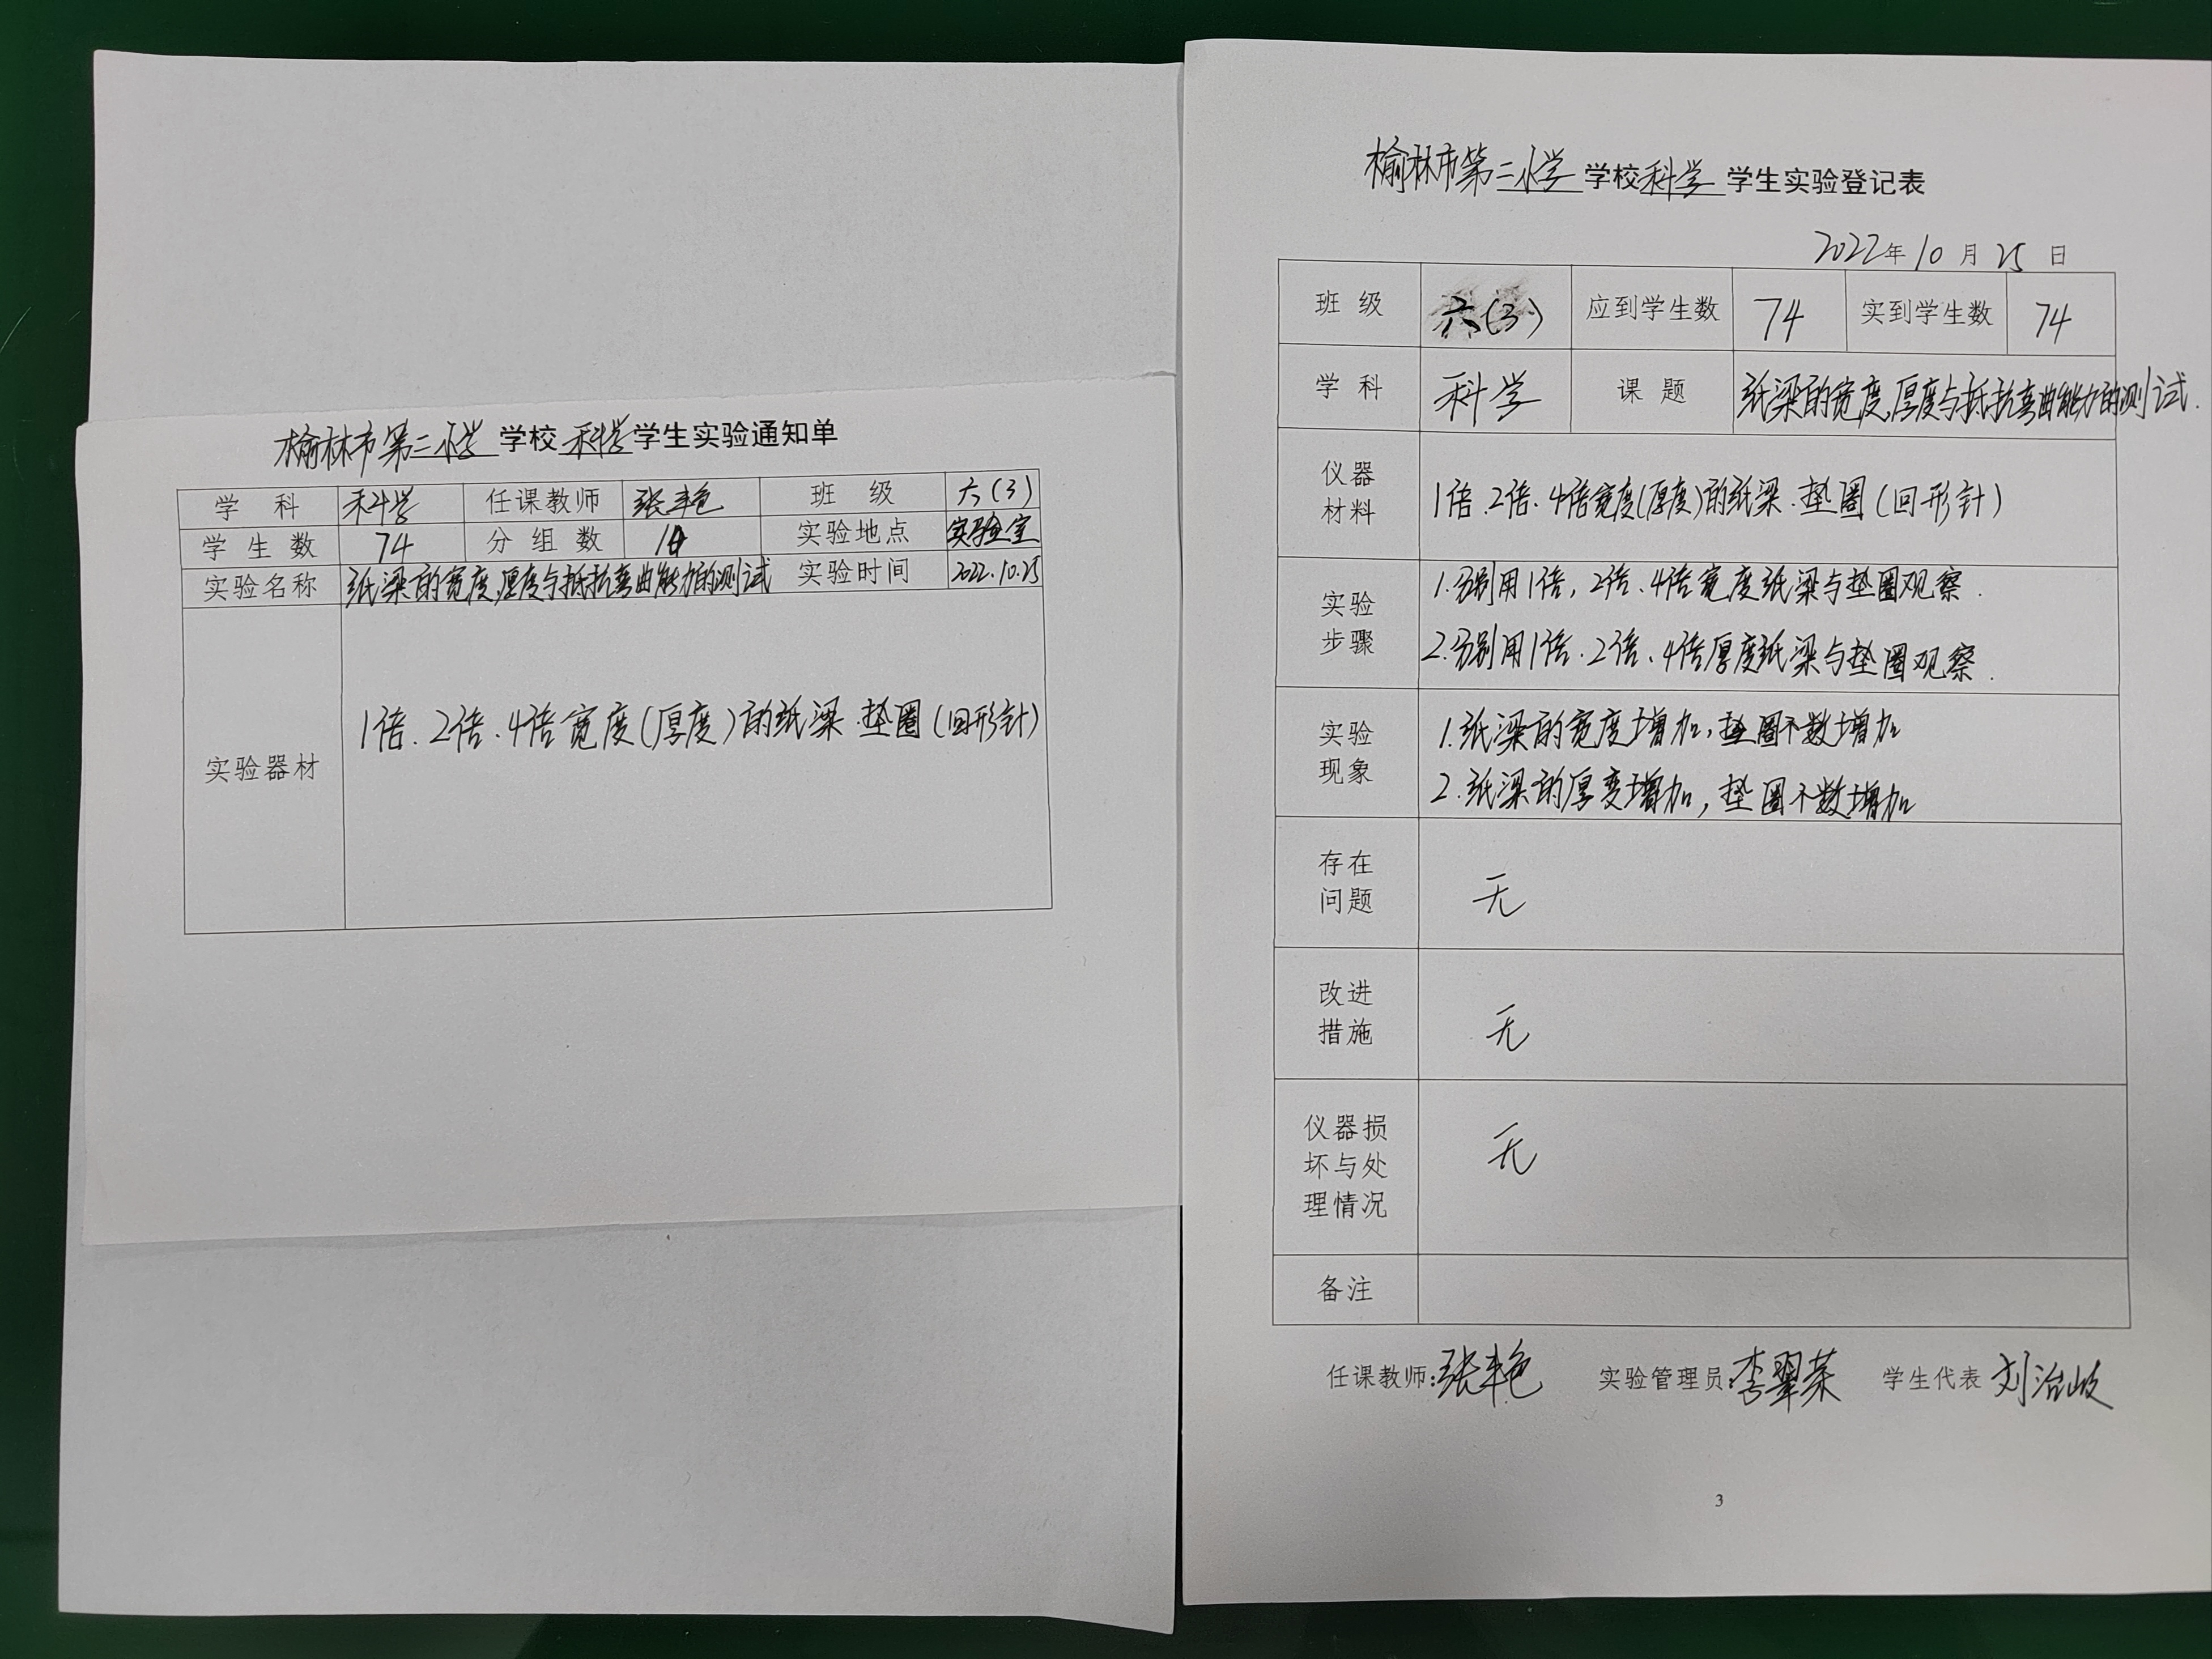 榆林市第二小学 学校 科学 学生实验通知单
学 科 科学 任课教师 张丰艳 班 级 六(3)
学生数 74 分组数 实验地点 实验室
实验名称 纸梁的宽度,厚度与抵抗弯曲能力的测试 实验时间 2022.10.25
实验器材 1倍.2倍.4倍宽度(厚度)的纸梁.垫圈(回形针)
榆林市第二小学 学校 科学 学生实验登记表
2022年10月25日
班 级 六(3) 应到学生数 74 实到学生数 74
学 科 科学 课 题 纸梁的宽度,厚度与抵抗弯曲能力的测试.
仪器
材料
1倍.2倍.4倍宽度(厚度)的纸梁.垫圈(回形针)
实验
步骤
1.分别用1倍,2倍.4倍宽度纸梁与垫圈观察.
2.分别用1倍.2倍.4倍厚度纸梁与垫圈观察.
实验
现象
1.纸梁的宽度增加,垫圈个数增加
2.纸梁的厚度增加,垫圈个数增加
存在
问题
无
改进
措施
无
仪器损
坏与处
理情况
无
备注
任课教师:张丰艳 实验管理员:李翠荣 学生代表 刘治岐
3